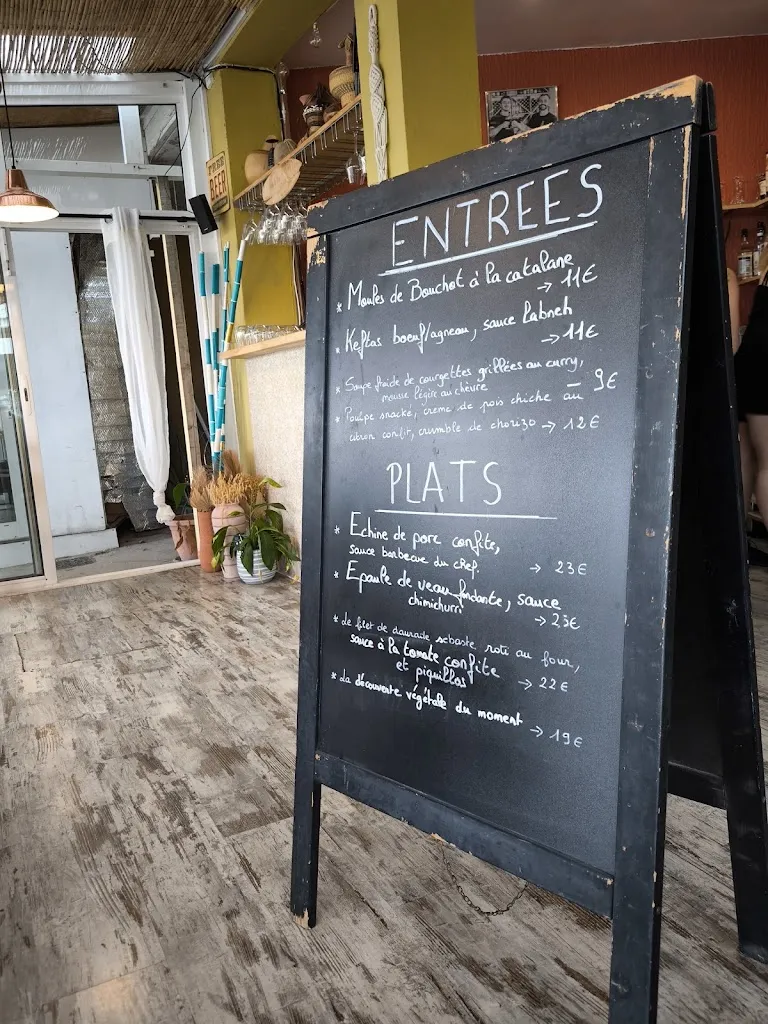 FREE
BEER
ENTREES
* Moules de Bouchot à la catalane
→ 11€
* Keftas boeuf/agneau, sauce labneh
→ 11€
* Soupe froide de courgettes grillées au curry,
mousse légère au chèvre — 9€
* Poulpe snacké, crème de pois chiche au
citron confit, crumble de chorizo → 12€
PLATS
* Echine de porc confite,
sauce barbecue du chef. → 23€
* Epaule de veau fondante, sauce
chimichurri → 23€
* Le filet de daurade sebaste roti au four,
sauce à la tomate confite
et piquillos → 22€
* La découverte végétale du moment
→ 19€